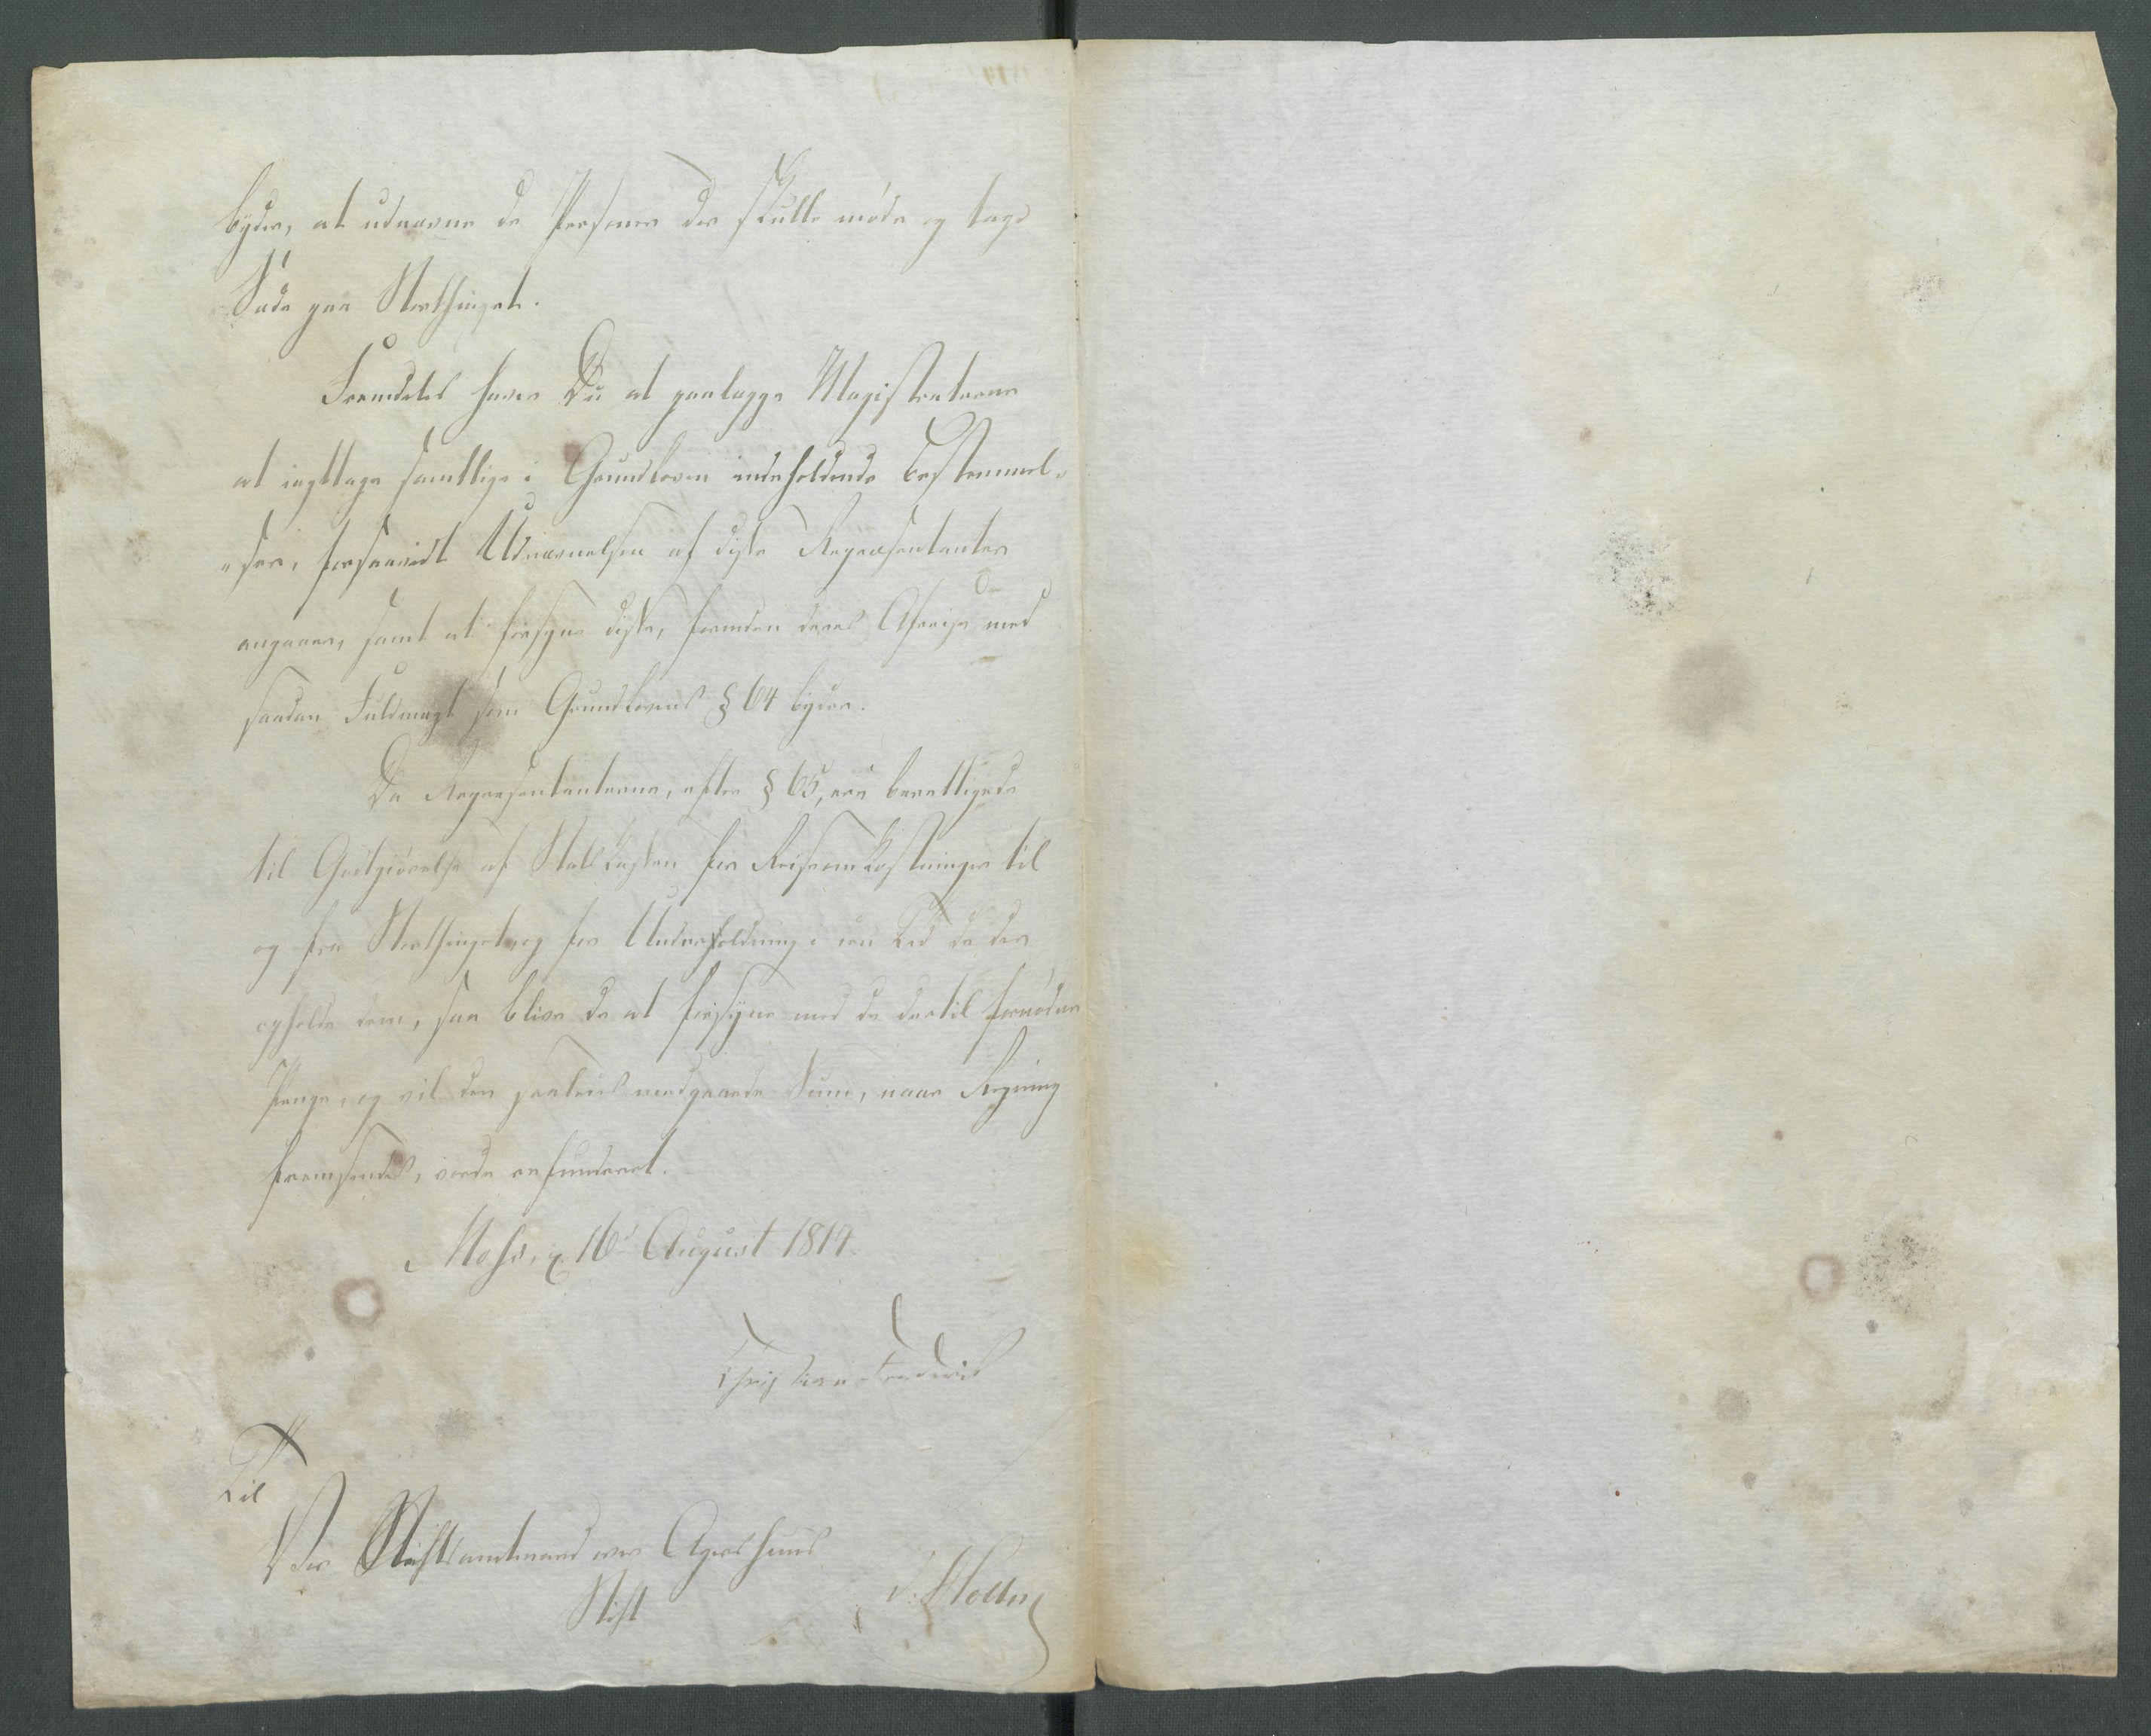 byder, at udnævne de Personer der skulle møde og tage
Sæde paa Storthinget.
Fremdeles haver Du at paalægge Magistraterne
at iagttage samtlige i Grundloven indeholdende Bestemmel-
"ser, forsaavidt Udnævnelsen af disse Repræsentanter
angaaer, samt at forsyne disse, forinden deres Afreise med
saadan Fuldmagt som Grundlovens § 64 byder.
Da Repræsentanterne, efter § 65, ere berettigede
til Godtgiørelse af Statskassen for Reiseomkostninger til
og fra Storthinget, og for Underholdning i den Tid de der
opholde dem, saa blive de at forsyne med de dertil fornødne
Penge, og vil den saaledes medgaaede Sum, naar Regning
fremsendes, vorde refunderet.
Moss, d. 16d August 1814.
Christian Frederik
Til
Vor Stiftsamtmand over Agershuus
Stift
v: Holten